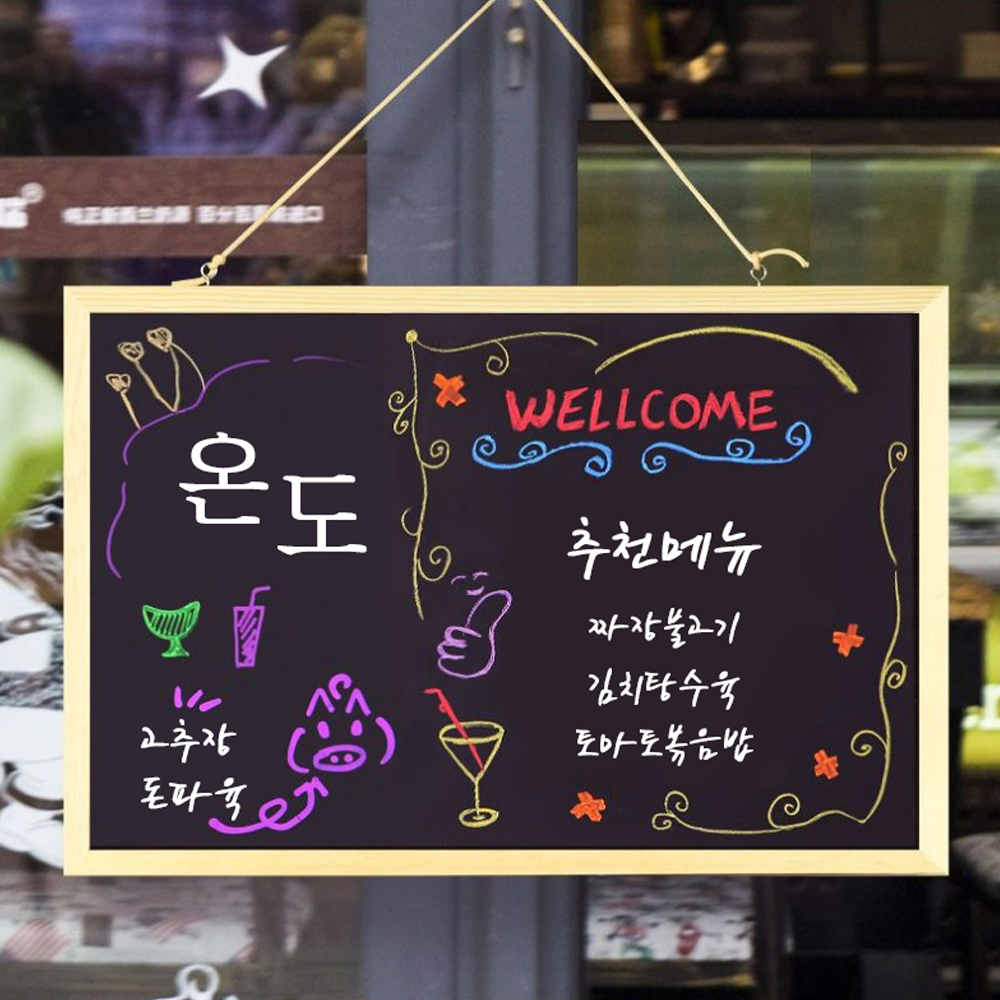 온도
고추장
돈파육
WELLCOME
추천메뉴
짜장불고기
김치탕수육
토마토볶음밥